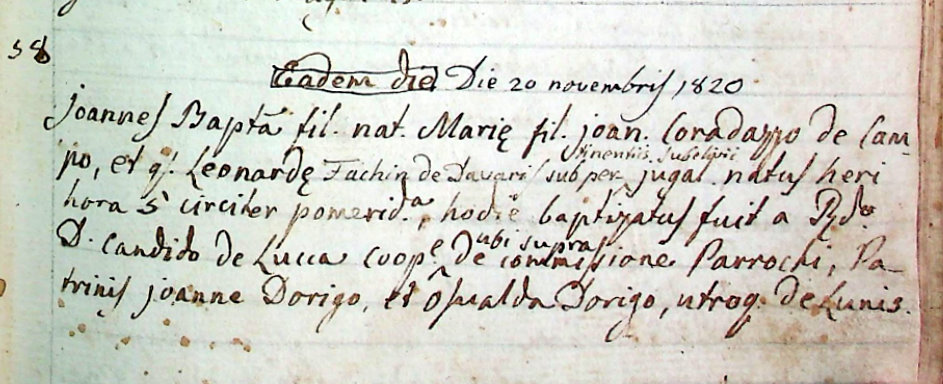 58
Eadem die Die 20 novembris 1820
Joannes Baptã fil. nat. Marię fil. joan. Coradazzo de Cam-
po, et q. Leonardę Fachin de Davaris sub per jugal. natus heri
hora 5 circiter pomerid.ª, hodie baptizatus fuit a Rdo.
ubi supra
D. Candido de Lucca Coop.e de commissione Parrochi, Pa-
trinis Joanne Dorigo, et Osualda Dorigo, utroq. de Lunis.